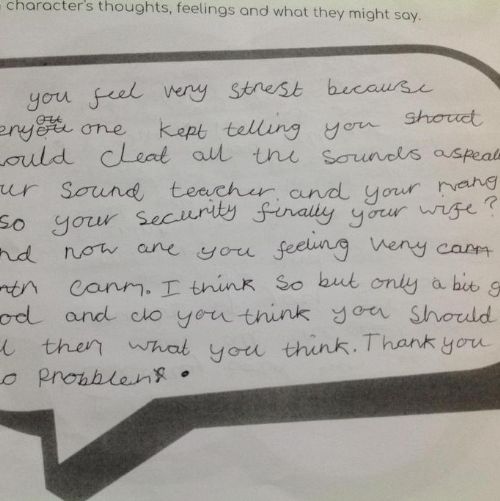 character's thoughts, feelings and what they might say.
you feel very strest because
one kept telling you shoud
ould cleat all the sounds aspeal
ur sound teacher and your mang
so your security finally your wife?
nd now are you feeling very cam
cam. I think so but only a bit g
od and do you think you should
l then what you think. Thank you
o probblem.